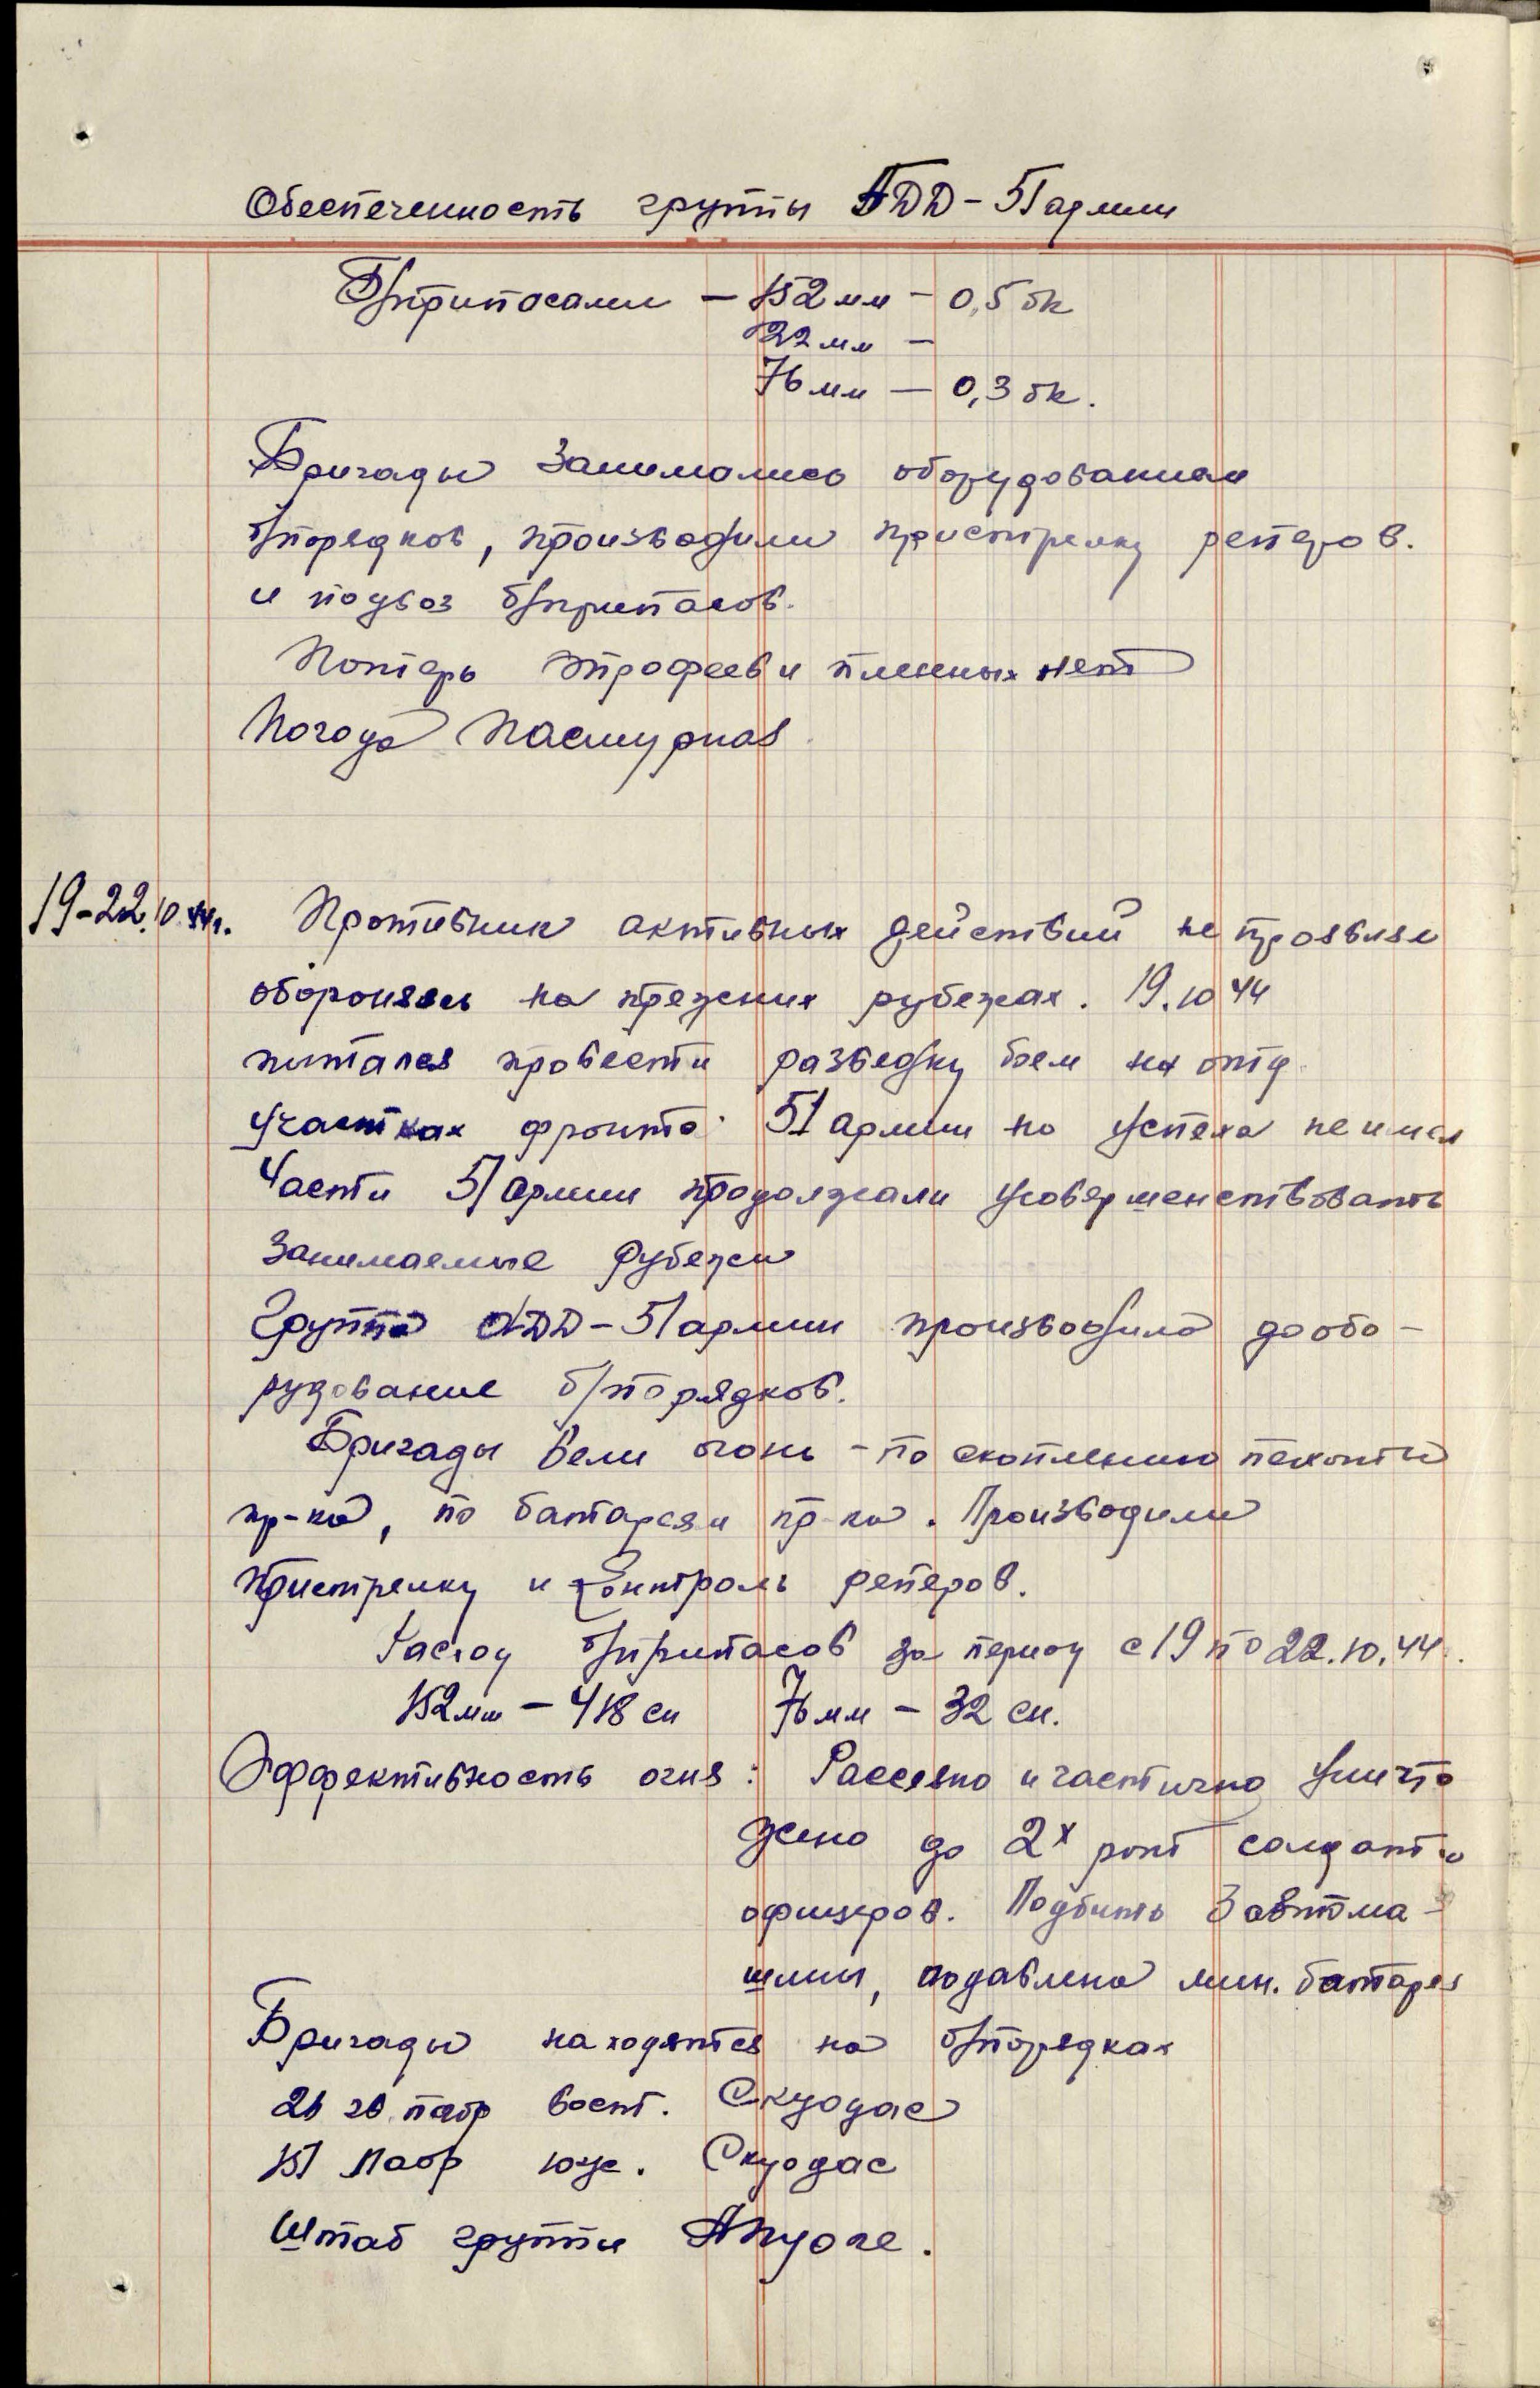 Обеспеченность группы АДД - 51 армии
Б/припасами — 152 мм — 0,5 бк
122 мм —
76 мм — 0,3 бк.
Бригады занимались оборудованием
б/порядков, производили пристрелку реперов.
и подвоз б/припасов.
Потерь трофеев и пленных нет
Погода пасмурная.
19-22.10.44г. Противник активных действий не проявлял
оборонялсь на прежних рубежах. 19.10 44
пытался провести разведку боем на отд.
участках фронта 51 армии но успеха не имел
Части 51 армии продолжали усовершенствовать
занимаемые рубежи
Группа АДД - 51 армии производила дообо-
рудование б/порядков.
Бригады вели огонь - по скоплению пехоты
пр-ка, по батареям пр-ка. Производили
пристрелку и контроль реперов.
Расход б/припасов за период с 19 по 22.10.44.
152мм — 418 сн 76 мм — 32 сн.
Эффективность огня: Рассеяно и частично уничто
жено до 2х рот солдат и
офицеров. Подбито 3 автома-
шины, подавлена мин. батарея
Бригады находятся на б/порядках
26 гв. пабр вост. Скуодас
151 пабр юж. Скуодас
Штаб группы Апуоле.